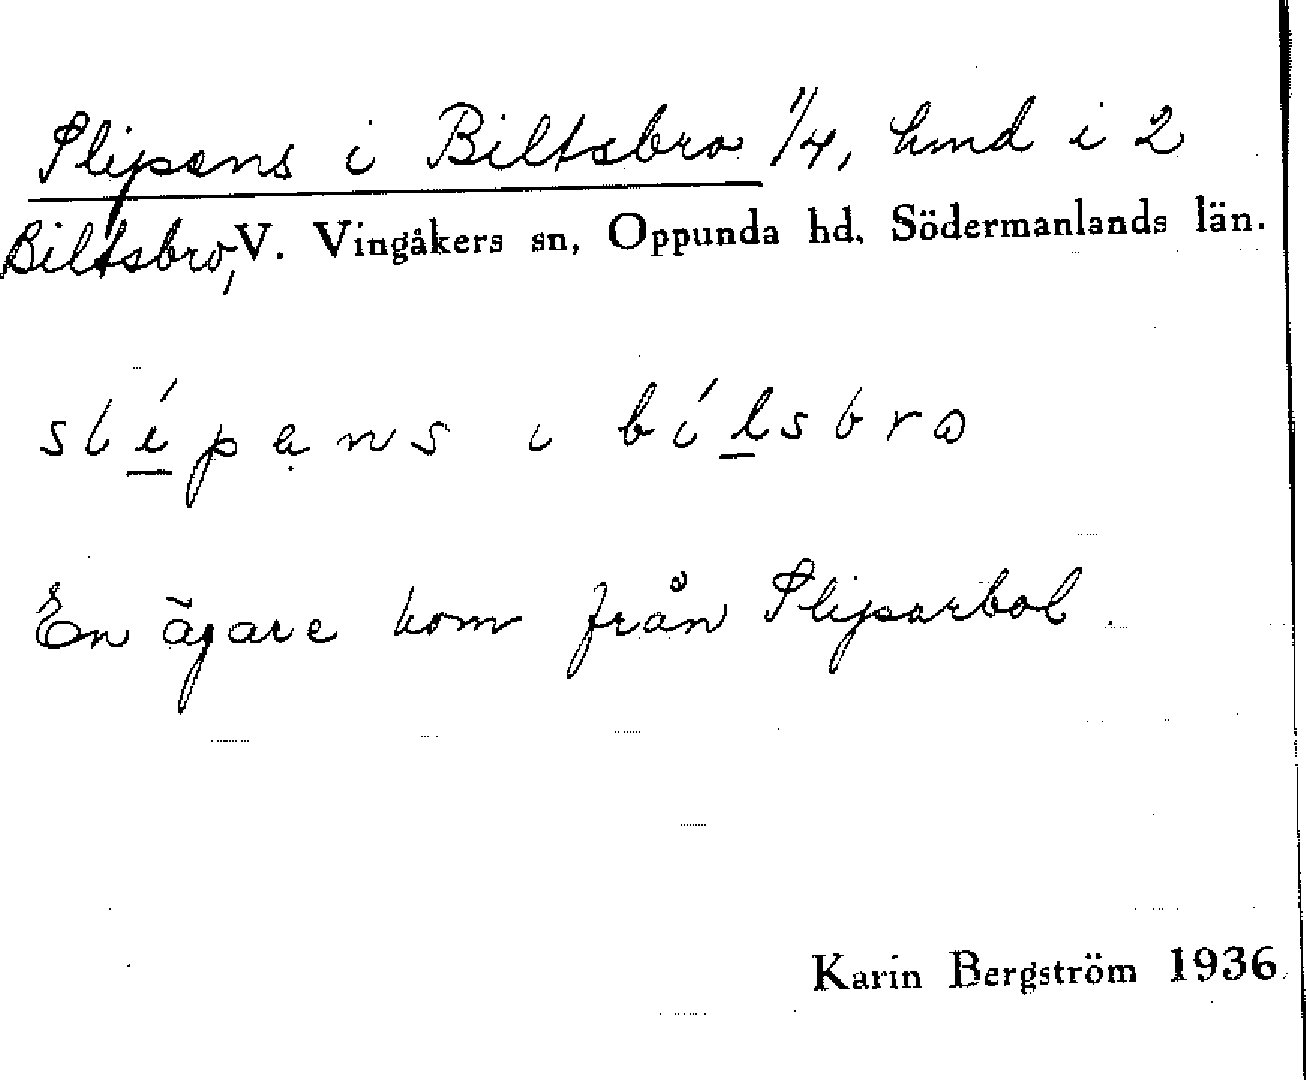 Slipsens i Biltsbro 1/4, hmd i 2
Biltsbro, V. Vingåkers sn, Oppunda hd. Södermanlands län.
slípans i bílsbro
En ägare kom från Slipsarbol.
Karin Bergström 1936